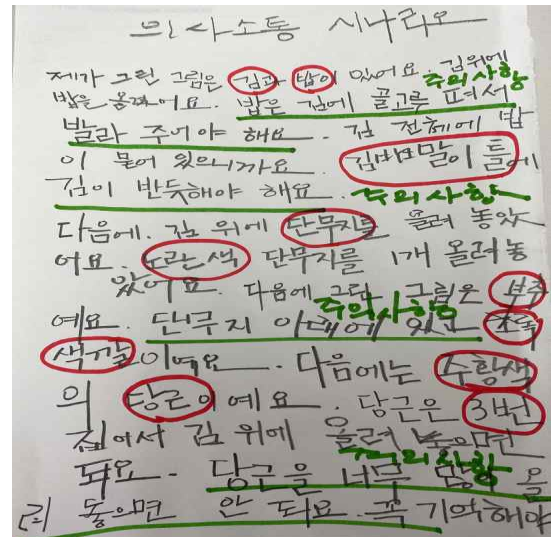 의사소통 시나리오
제가 그린 그림은 김과 밥이 있어요. 김위에
주의사항
밥을 올려어요. 밥은 김에 골고루 펴서
발라 주어야 해요. 김 전체에 밥
이 묻어 있으니까요. 김밥말이 틀에
김이 반듯해야 해요. 주의사항
다음에. 김 위에 단무지를 올려 놓았
어요. 노란색 단무지를 1개 올려놓
았어요. 다음에 그린 그림은 부추
주의사항
예요. 단무지 아래에 있고 초록
색깔이에요. 다음에는 주황색
의 당근이예요. 당근은 3번
집어서 김 위에 올려 놓으면
주의사항
돼요. 당근을 너무 많이 올
려 놓으면 안 돼요. 꼭 기억해야